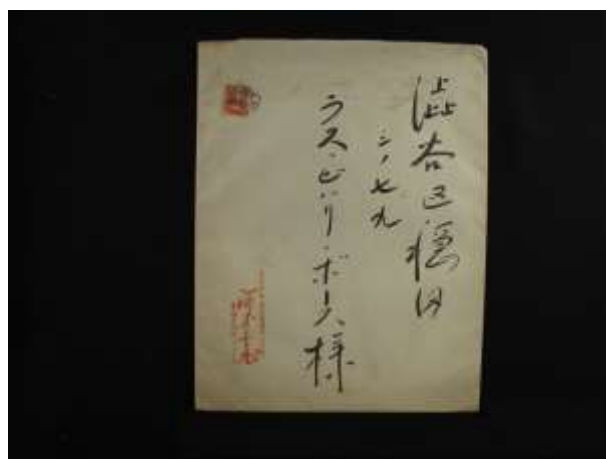 澁谷区穏田
三ノ七九
ラス・ビハリ・ボース様